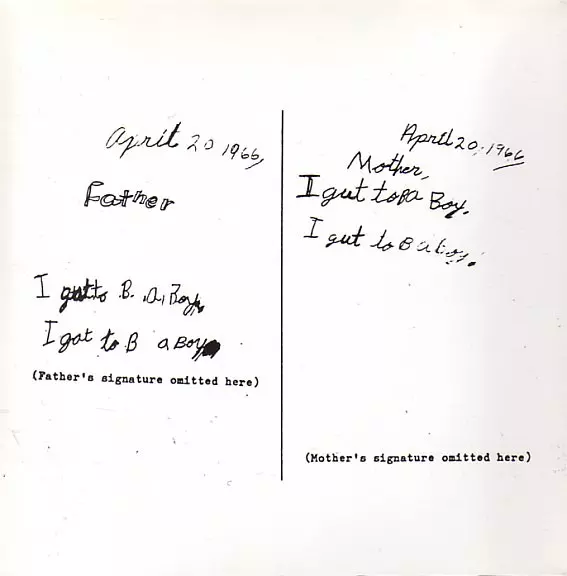 April 20 1966,
Father
I gut to B. .a, Boy,
I got to B a Boy
(Father's signature omitted here)
April 20, 1966
Mother,
I gut to Ba Boy.
I gut to B a boy.
(Mother's signature omitted here)